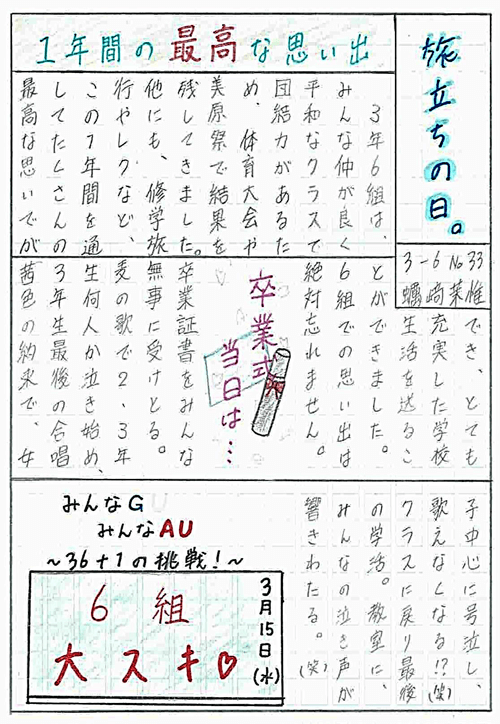 旅立ちの日。
3-6 No33
蠣﨑茉惟
1年間の最高な思い出
3年6組は、
みんな仲が良く
平和なクラスで
団結力があるた
め、体育大会や
美原祭で結果を
残してきました。
他にも、修学旅
行やレクなど、
この1年間を通
してたくさんの
最高な思いでが
でき、とても
充実した学校
生活を送るこ
とができました。
6組での思い出は
絶対忘れません。
卒業式
当日は…
卒業証書をみんな
無事に受けとる。
麦の歌で2、3年
生何人か泣き始め、
3年生最後の合唱
茜色の約束で、女
子中心に号泣し、
歌えなくなる!?(笑)
クラスに戻り最後
の学活。教室に、
みんなの泣き声が
響きわたる。(笑)
みんなGU
みんなAU
~36+1の挑戦!~
3月15日(水)
6組
大スキ♡